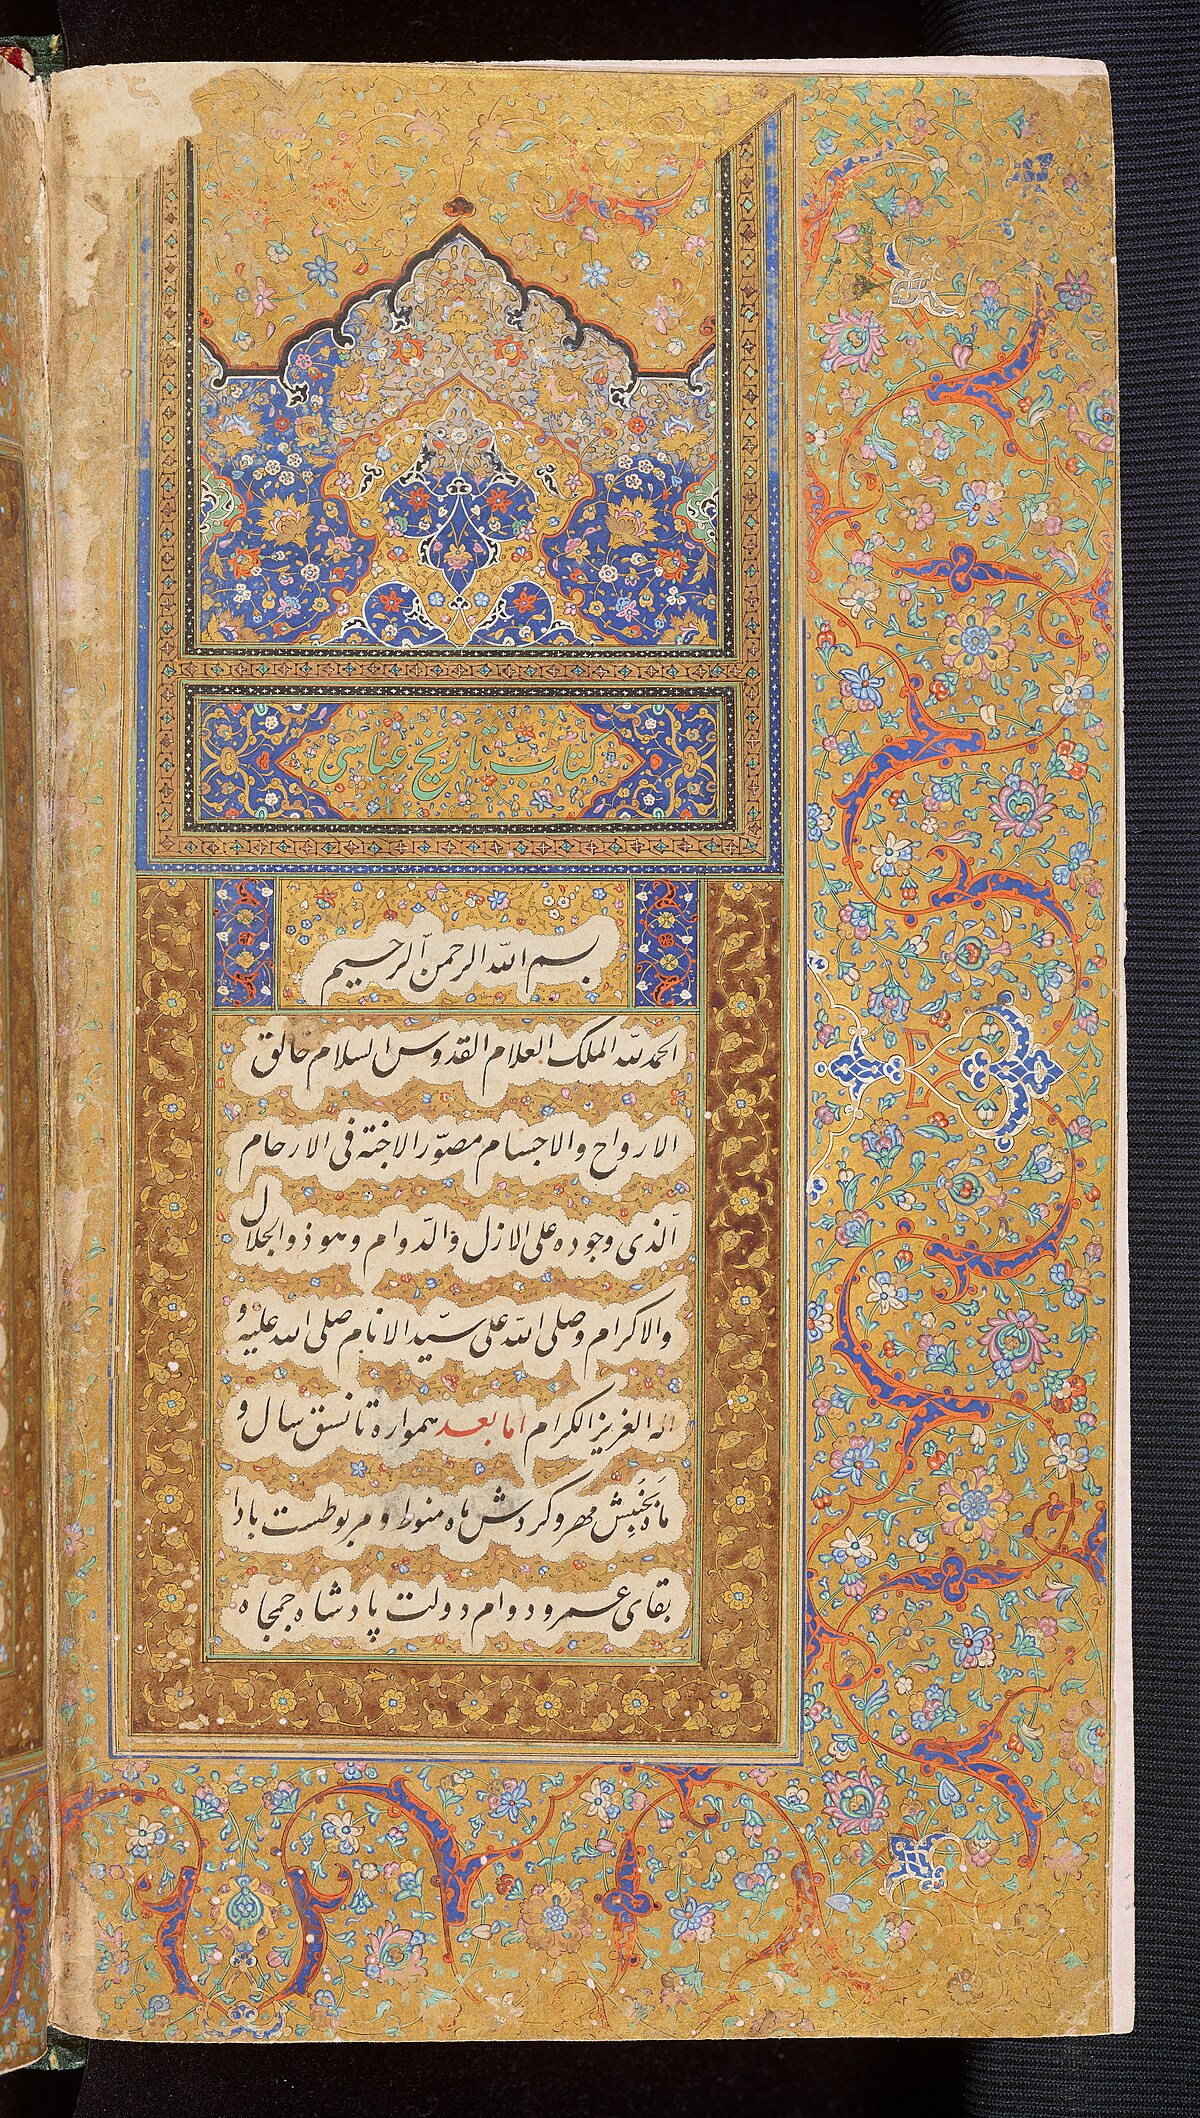 کتاب تاریخ عباسی
بسم الله الرحمن الرحیم
الحمد لله الملک العلام القدوس السلام خالق
الارواح والاجسام مصوّر الاجنّة فی الارحام
الّذی وجوده علی الازل والدّوام وهو ذو الجلال
والاکرام وصلی الله علی سیّد الانام صلی الله علیه و
اله الغریز الکرام اما بعد همواره تا نسق سال و
ماه بجُنبش مهر و کردش ماه منوط و مربوطست بادا
بقای عمر و دوام دولت پادشاه جمجاه